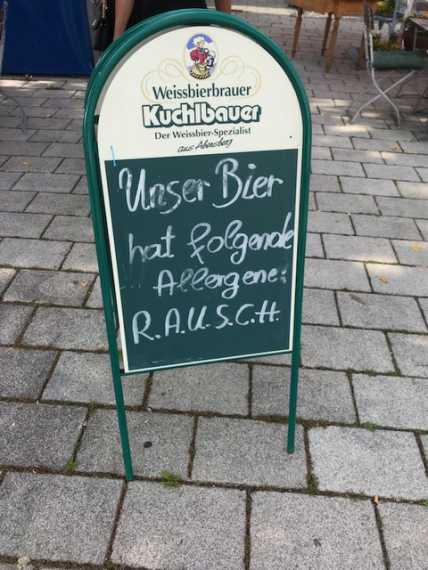 Weissbierbrauer
Kuchlbauer
Der Weissbier-Spezialist
aus Abensberg
Unser Bier
hat folgende
Allergene:
R.A.U.S.C.H.